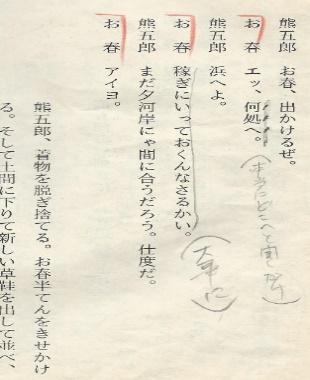 熊五郎 お春、出かけるぜ。
お 春 エッ、何処へ。
熊五郎 浜へよ。
お 春 稼ぎにいっておくんなさるかい。
(大事に)
熊五郎 まだ夕河岸にゃ間に合うだろう。仕度だ。
お 春 アイヨ。
熊五郎、着物を脱ぎ捨てる。お春半てんをきせかけ
る。そして土間に下りて新しい草鞋を出して並べ、